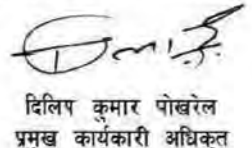 दिलिप कुमार पोखरेल
प्रमख कार्यकारी अधिकत